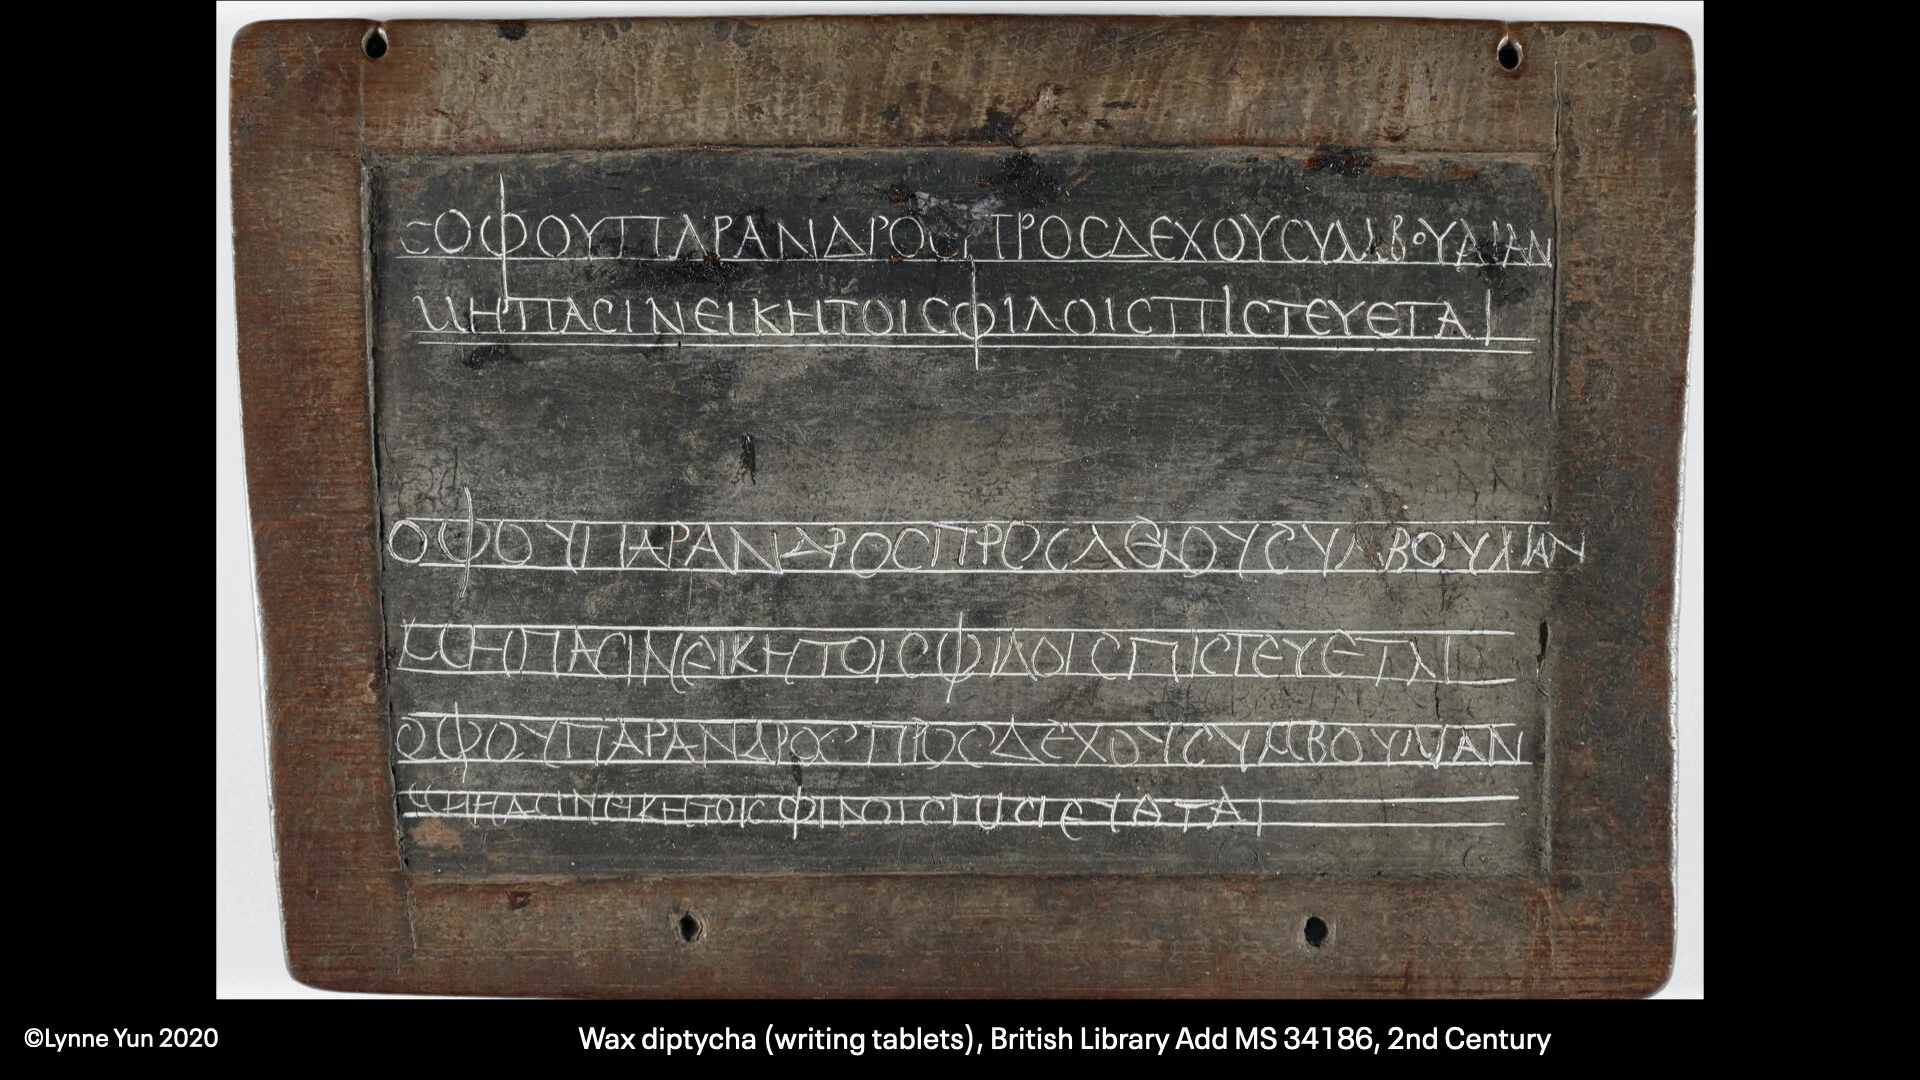 ϹΟΦΟΥΠΑΡΑΝΔΡΟϹΠΡΟϹΔΕΧΟΥϹΥΜΒΟΥΛΙΑΝ
ΜΗΠΑϹΙΝΕΙΚΗΤΟΙϹΦΙΛΟΙϹΠΙϹΤΕΥΕΤΑΙ
ΟΦΟΥΠΑΡΑΝΔΡΟϹΠΡΟϹΔΕΧΟΥϹΥΜΒΟΥΛΙΑΝ
ΜΗΠΑϹΙΝΕΙΚΗΤΟΙϹΦΙΛΟΙϹΠΙϹΤΕΥΕΤΑΙ
ΟΦΟΥΠΑΡΑΝΔΡΟϹΠΡΟϹΔΕΧΟΥϹΥΜΒΟΥΛΙΑΝ
©Lynne Yun 2020
Wax diptycha (writing tablets), British Library Add MS 34186, 2nd Century